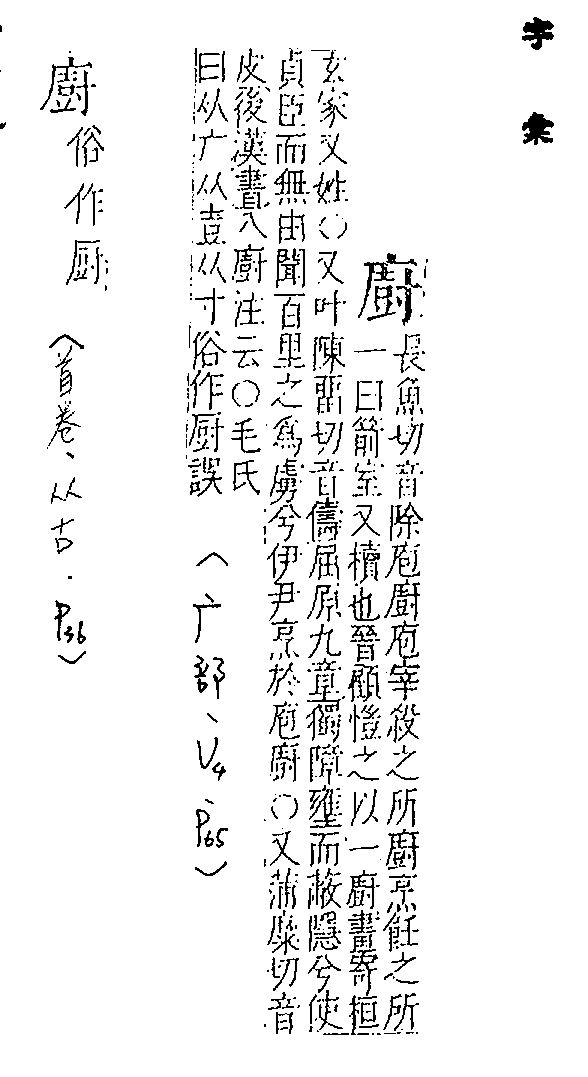 字彙
廚
長魚切音除庖廚庖宰殺之所廚烹飪之所
一曰箭室又櫝也晉顧愷之以一廚畫寄桓
玄家又姓○又叶陳畱切音儔屈原九章獨障壅而蔽隱兮使
貞臣而無由聞百里之為虜兮伊尹烹於庖廚○又蒲糜切音
皮後漢書八廚注云○毛氏
曰从广从壴从寸俗作厨誤
(广部、V4、P65)
廚俗作厨
(首卷、从古.P36)